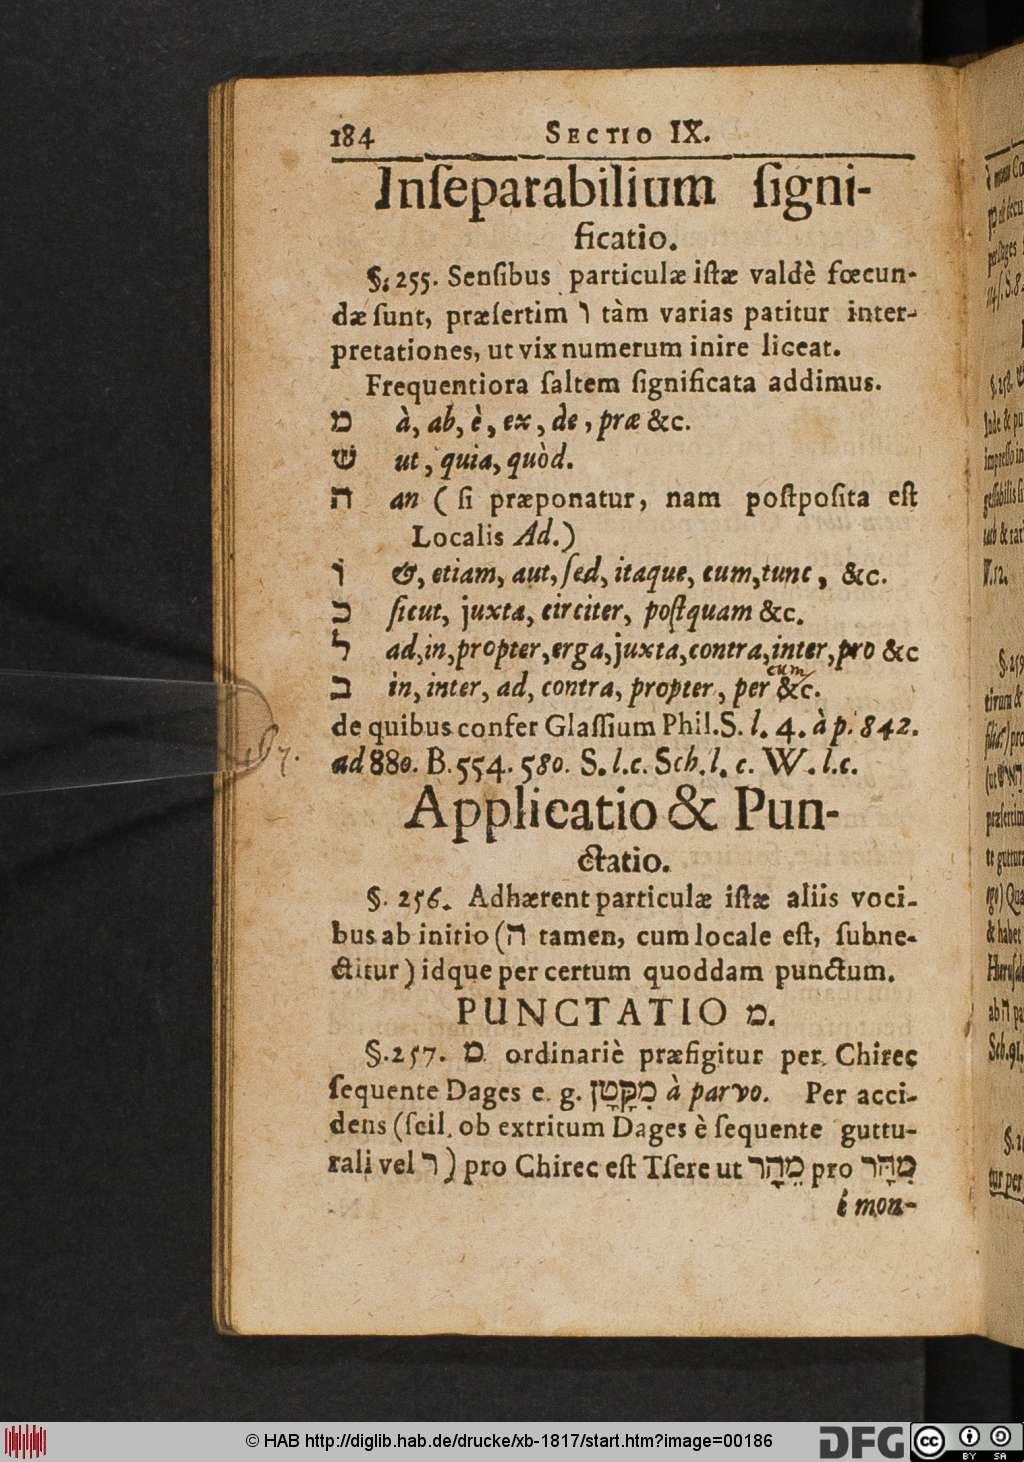 184 SECTIO IX.
Inſeparabilium ſigni-
ficatio.
§. 255. Senſibus particulæ iſtæ valdè fœcun-
dæ ſunt, præſertim ו tàm varias patitur inter-
pretationes, ut vix numerum inire liceat.
Frequentiora ſaltem ſignificata addimus.
מ à, ab, è, ex, de, præ &c.
ש ut, quia, quòd.
ה an ( ſi præponatur, nam poſtpoſita eſt
Localis Ad.)
ו &, etiam, aut, ſed, itaque, cum, tunc, &c.
כ ſicut, juxta, circiter, poſtquam &c.
ל ad, in, propter, erga, juxta, contra, inter, pro &c
cum
ב in, inter, ad, contra, propter, per &c.
de quibus confer Glaſſium Phil. S. l. 4. à p. 842.
ad 880. B. 554. 580. S. l. c. Sch. l. c. W. l. c.
Applicatio & Pun-
ctatio.
§. 256. Adhærent particulæ iſtæ aliis voci-
bus ab initio (ה tamen, cum locale eſt, ſubne-
ctitur) idque per certum quoddam punctum.
PUNCTATIO מ.
§. 257. מ ordinariè præfigitur per Chirec
ſequente Dages e. g. מִקָּטָן à parvo. Per acci-
dens (ſcil. ob extritum Dages è ſequente guttu-
rali vel ר) pro Chirec eſt Tſere ut מֵהָר pro מִהָּר
è mon-
© HAB http://diglib.hab.de/drucke/xb-1817/start.htm?image=00186
DFG
cc
BY SA